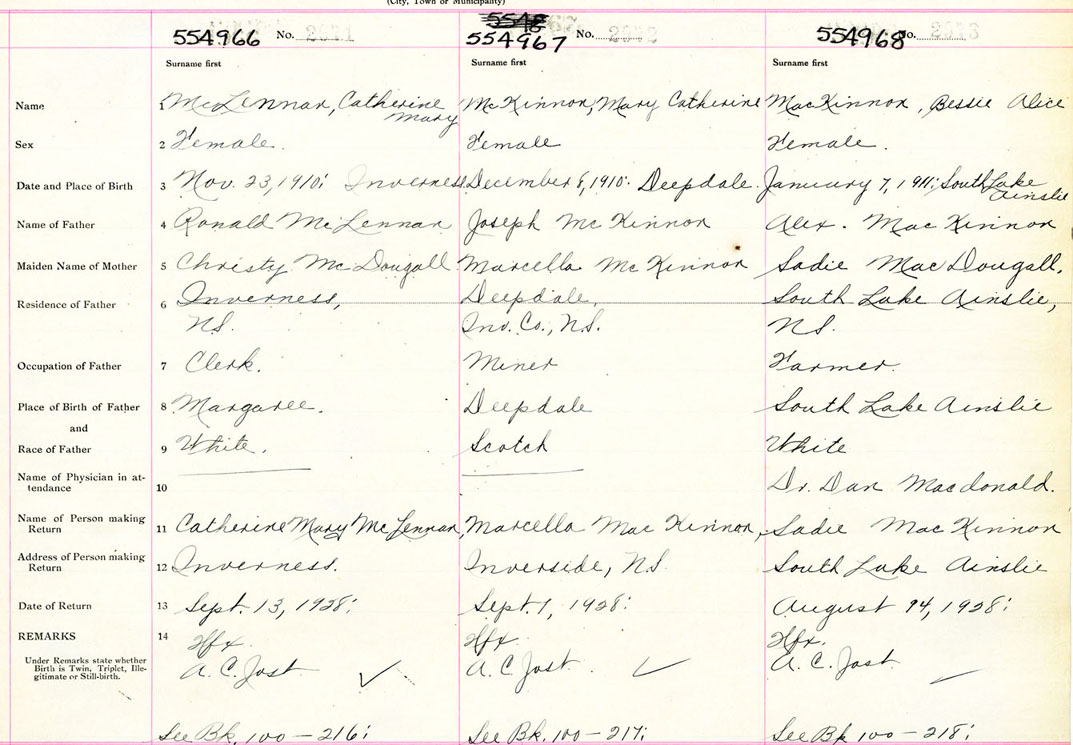 (City, Town or Municipality)
554966 No. 2041
554967 No. 2042
554968 No. 2043
Surname first Surname first Surname first
Name 1 McLennan, Catherine Mary McKinnon, Mary Catherine MacKinnon, Bessie Alice
Sex 2 Female. Female Female.
Date and Place of Birth 3 Nov. 23, 1910; Inverness December 8, 1910. Deepdale. January 7, 1911; South Lake Ainslie
Name of Father 4 Ronald McLennan Joseph McKinnon Alex. MacKinnon
Maiden Name of Mother 5 Christy McDougall Marcella McKinnon Sadie MacDougall,
Residence of Father 6 Inverness, Deepdale, South Lake Ainslie,
N.S. Inv. Co., N.S. N.S.
Occupation of Father 7 Clerk. Miner Farmer.
Place of Birth of Father 8 Margaree. Deepdale South Lake Ainslie
and
Race of Father 9 White. Scotch White
Name of Physician in at-
tendance 10 Dr. Dan Macdonald.
Name of Person making
Return 11 Catherine Mary McLennan, Marcella MacKinnon, Sadie MacKinnon
Address of Person making
Return 12 Inverness. Inverside, N.S. South Lake Ainslie
Date of Return 13 Sept. 13, 1928; Sept. 1, 1928; August 1928;
REMARKS 14 Hfx. Hfx. Hfx.
Under Remarks state whether
Birth is Twin, Triplet, Ille-
gitimate or Still-birth.
A. C. Jost A. C. Jost. A. C. Jost.
See Bk. 100 – 216; See Bk. 100 – 217; See Bk 100 – 218;